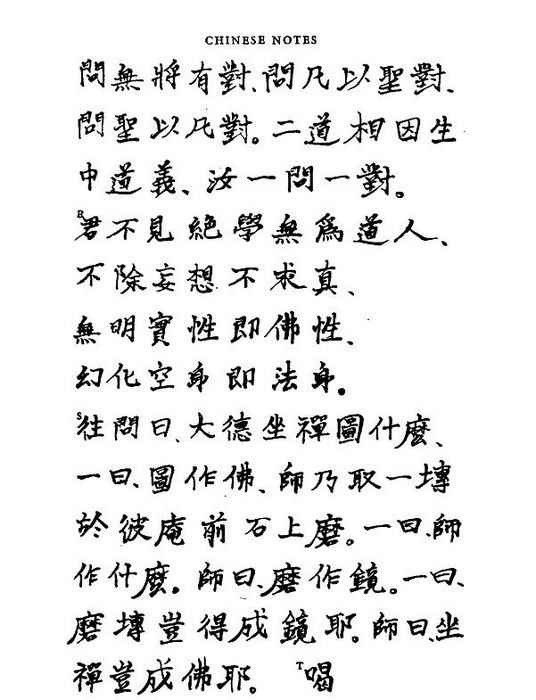 CHINESE NOTES
問無將有對、問凡以聖對、
問聖以凡對。二道相因生
中道義、汝一問一對。
R君不見絕學無爲道人、
不除妄想不求真、
無明實性即佛性、
幻化空身即法身。
S往問曰、大德坐禪圖什麼、
一曰、圖作佛、師乃取一塼
於彼庵前石上磨。一曰、師
作什麼。師曰、磨作鏡。一曰、
磨塼豈得成鏡耶。師曰、坐
禪豈成佛耶。 T喝